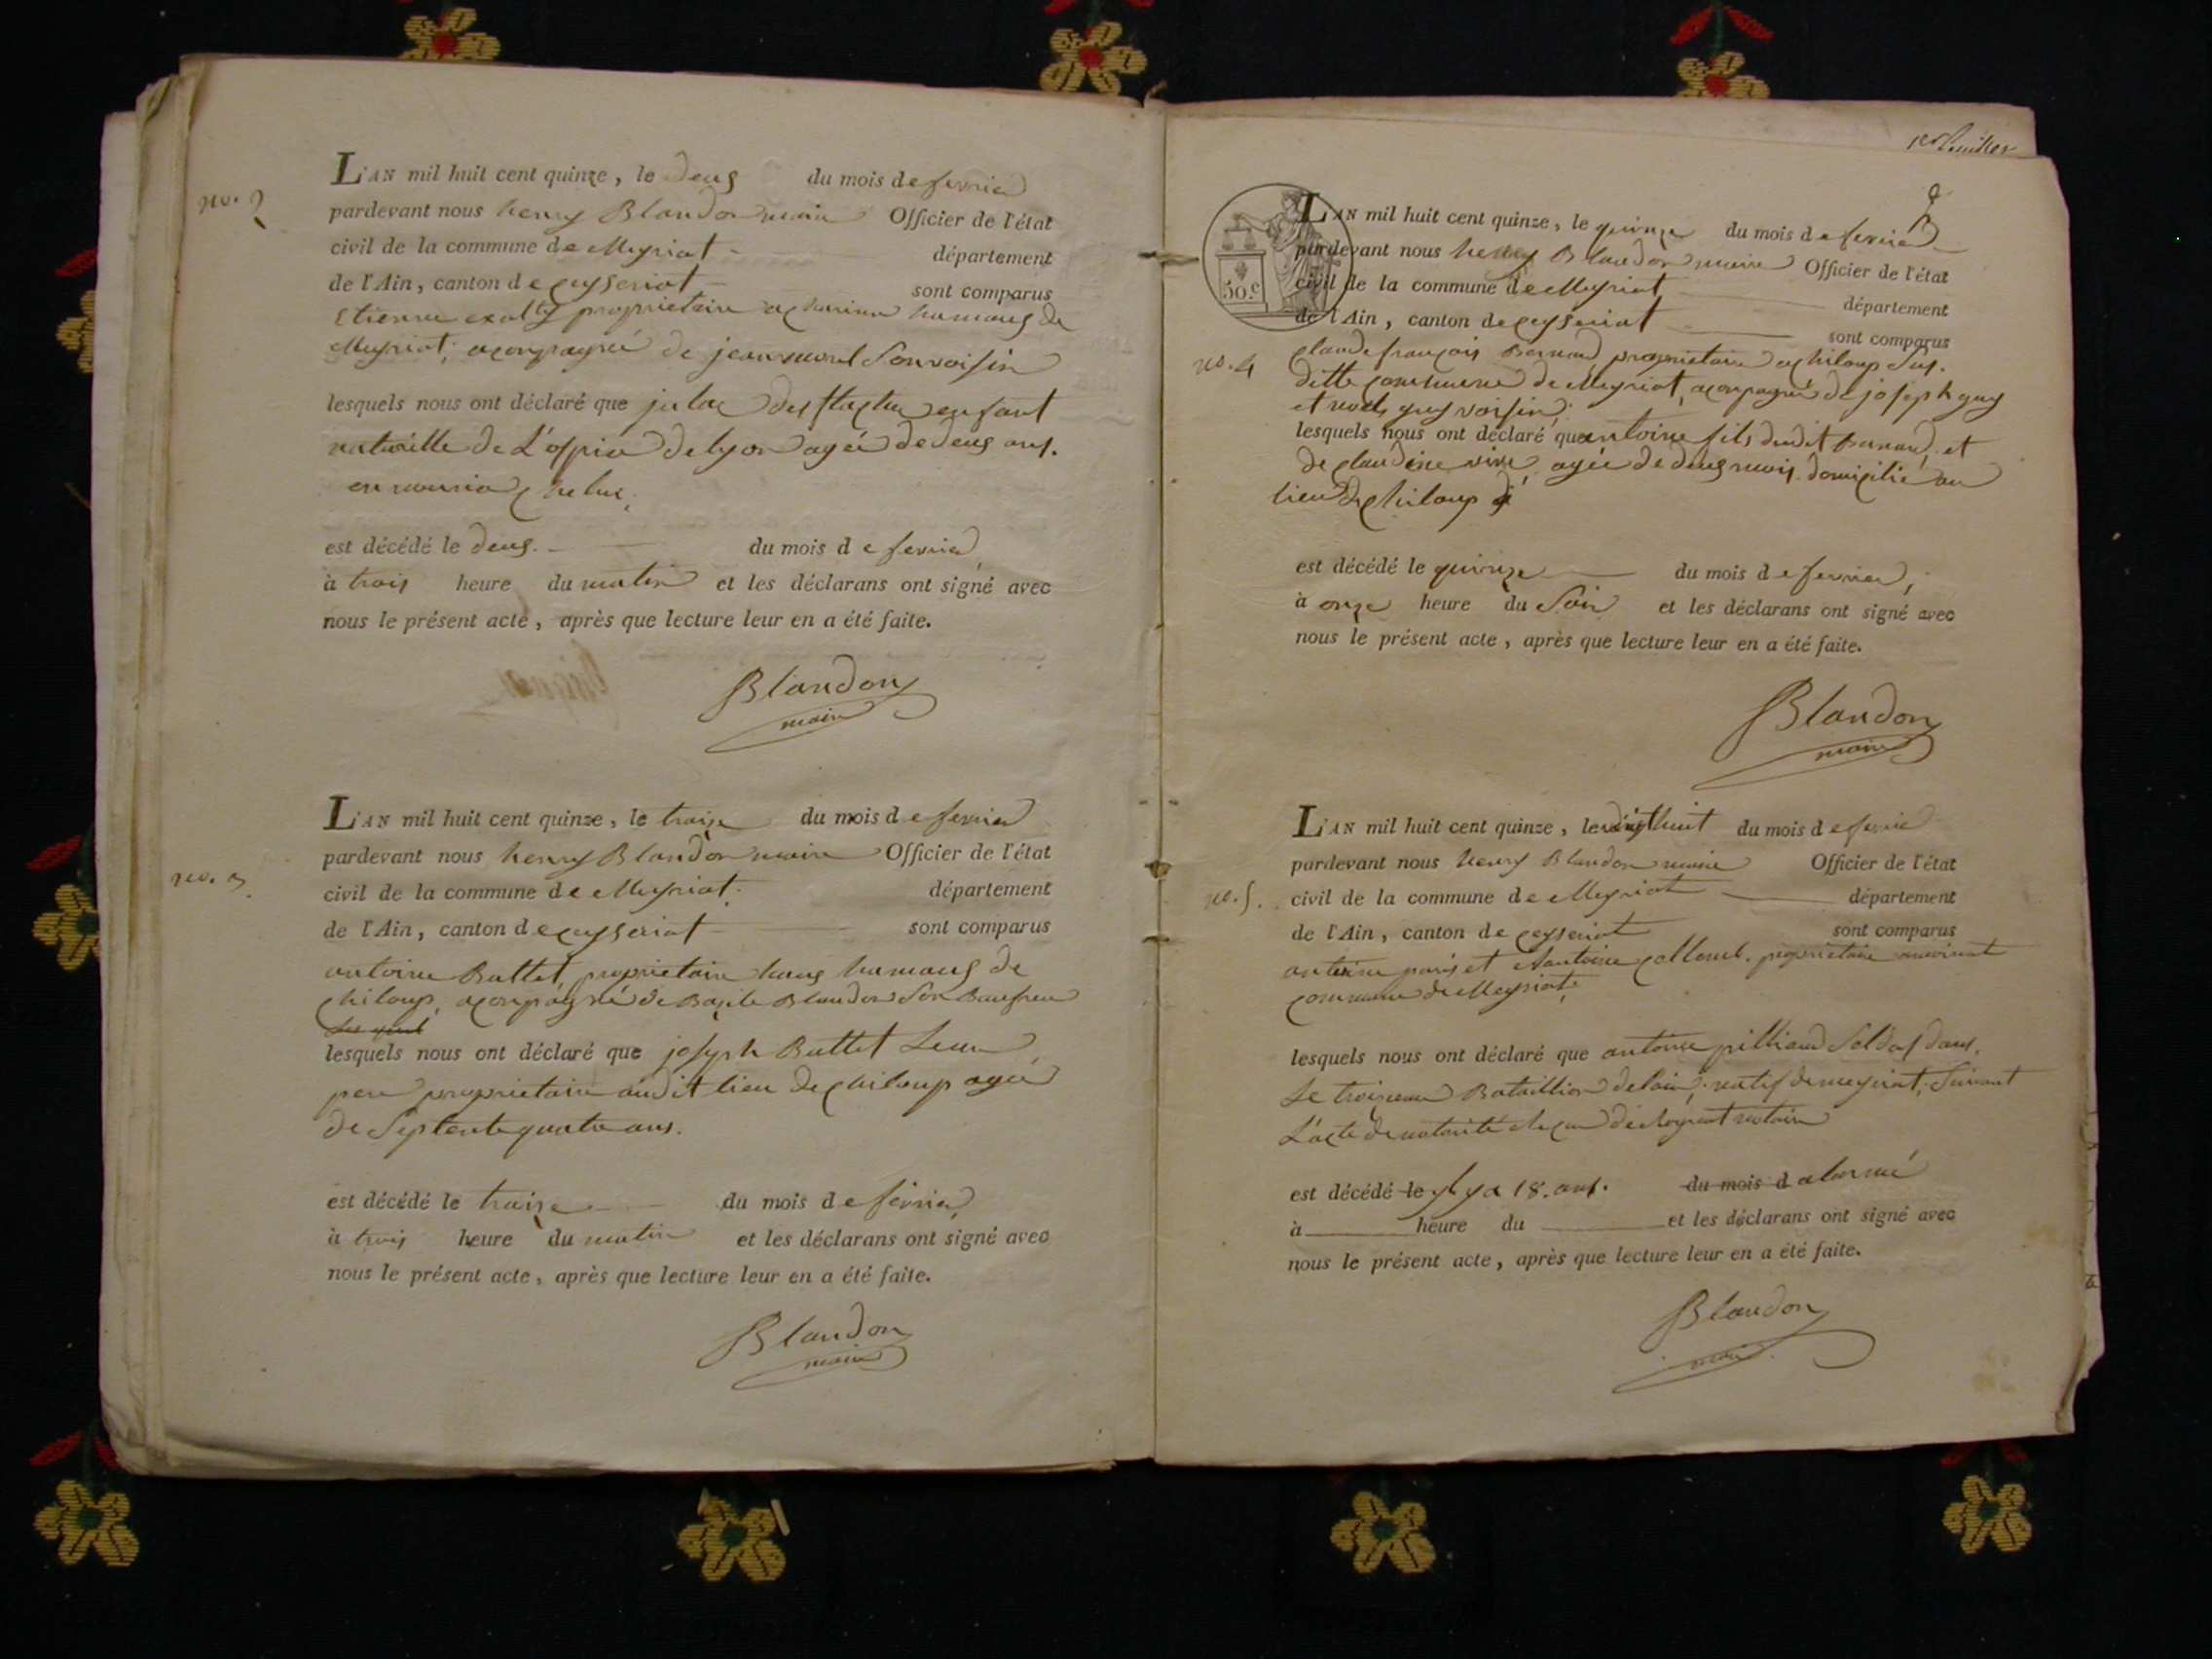 no. 2
L'AN mil huit cent quinze, le deus du mois de fevrier
pardevant nous henry Blandon maire Officier de l'état
civil de la commune de Meyriat département
de l'Ain, canton de ceyseriat sont comparus
Etienne propriétaire hamaus de
Meyriat, acompagné de jean morel Son voisin
lesquels nous ont déclaré que enfant
naturélle de L'ospice de lyon agée de deus ans.
en nourice
est décédé le deus. du mois de fevrier
à trois heure du matin et les déclarans ont signé avec
nous le présent acte, après que lecture leur en a été faite.
Blandon
maire
no. 3
L'AN mil huit cent quinze, le traize du mois de fevrier
pardevant nous henry Blandon maire Officier de l'état
civil de la commune de Meyriat. département
de l'Ain, canton de ceyseriat sont comparus
antoine Buttet, propriétaire hamaus de
chiloup, acompagné de Bazile Blandon Son Baufrere
lesquels nous ont déclaré que joseph Buttet Leur
pere propriétaire audit lieu de chiloup agée
de Septente quatre ans.
est décédé le traize du mois de février
à trois heure du matin et les déclarans ont signé avec
nous le présent acte, après que lecture leur en a été faite.
Blandon
maire
2
50.c
L'AN mil huit cent quinze, le quinze du mois de fevrier
pardevant nous henry Blandon maire Officier de l'état
civil de la commune de Meyriat département
de l'Ain, canton de ceyseriat sont comparus
no. 4
claude françois Bernard propriétaire a chiloup Sus.
ditte commune de Meyriat, acompagné de joseph guy
et guy voisin,
lesquels nous ont déclaré que antoine fils dudit Bernard, et
de claudine agée de deus mois domicilié au
lieu de chiloup
est décédé le quinze du mois de fevrier,
à onze heure du Soir et les déclarans ont signé avec
nous le présent acte, après que lecture leur en a été faite.
Blandon
maire
L'AN mil huit cent quinze, le dixthuit du mois de fevrie
pardevant nous henry Blandon maire Officier de l'état
no. 5. civil de la commune de Meyriat département
de l'Ain, canton de ceyseriat sont comparus
antoine paris et Antoine propriétaire
commune de Meyriat.
lesquels nous ont déclaré que antoine pilliard Soldat dans.
Le troizieme Bataillion de lain, natif de meyriat, Suivant
L'acte de notorité notaire
est décédé le y a 18. ans. du mois d alarmé
à heure du et les déclarans ont signé avec
nous le présent acte, après que lecture leur en a été faite.
Blandon
maire